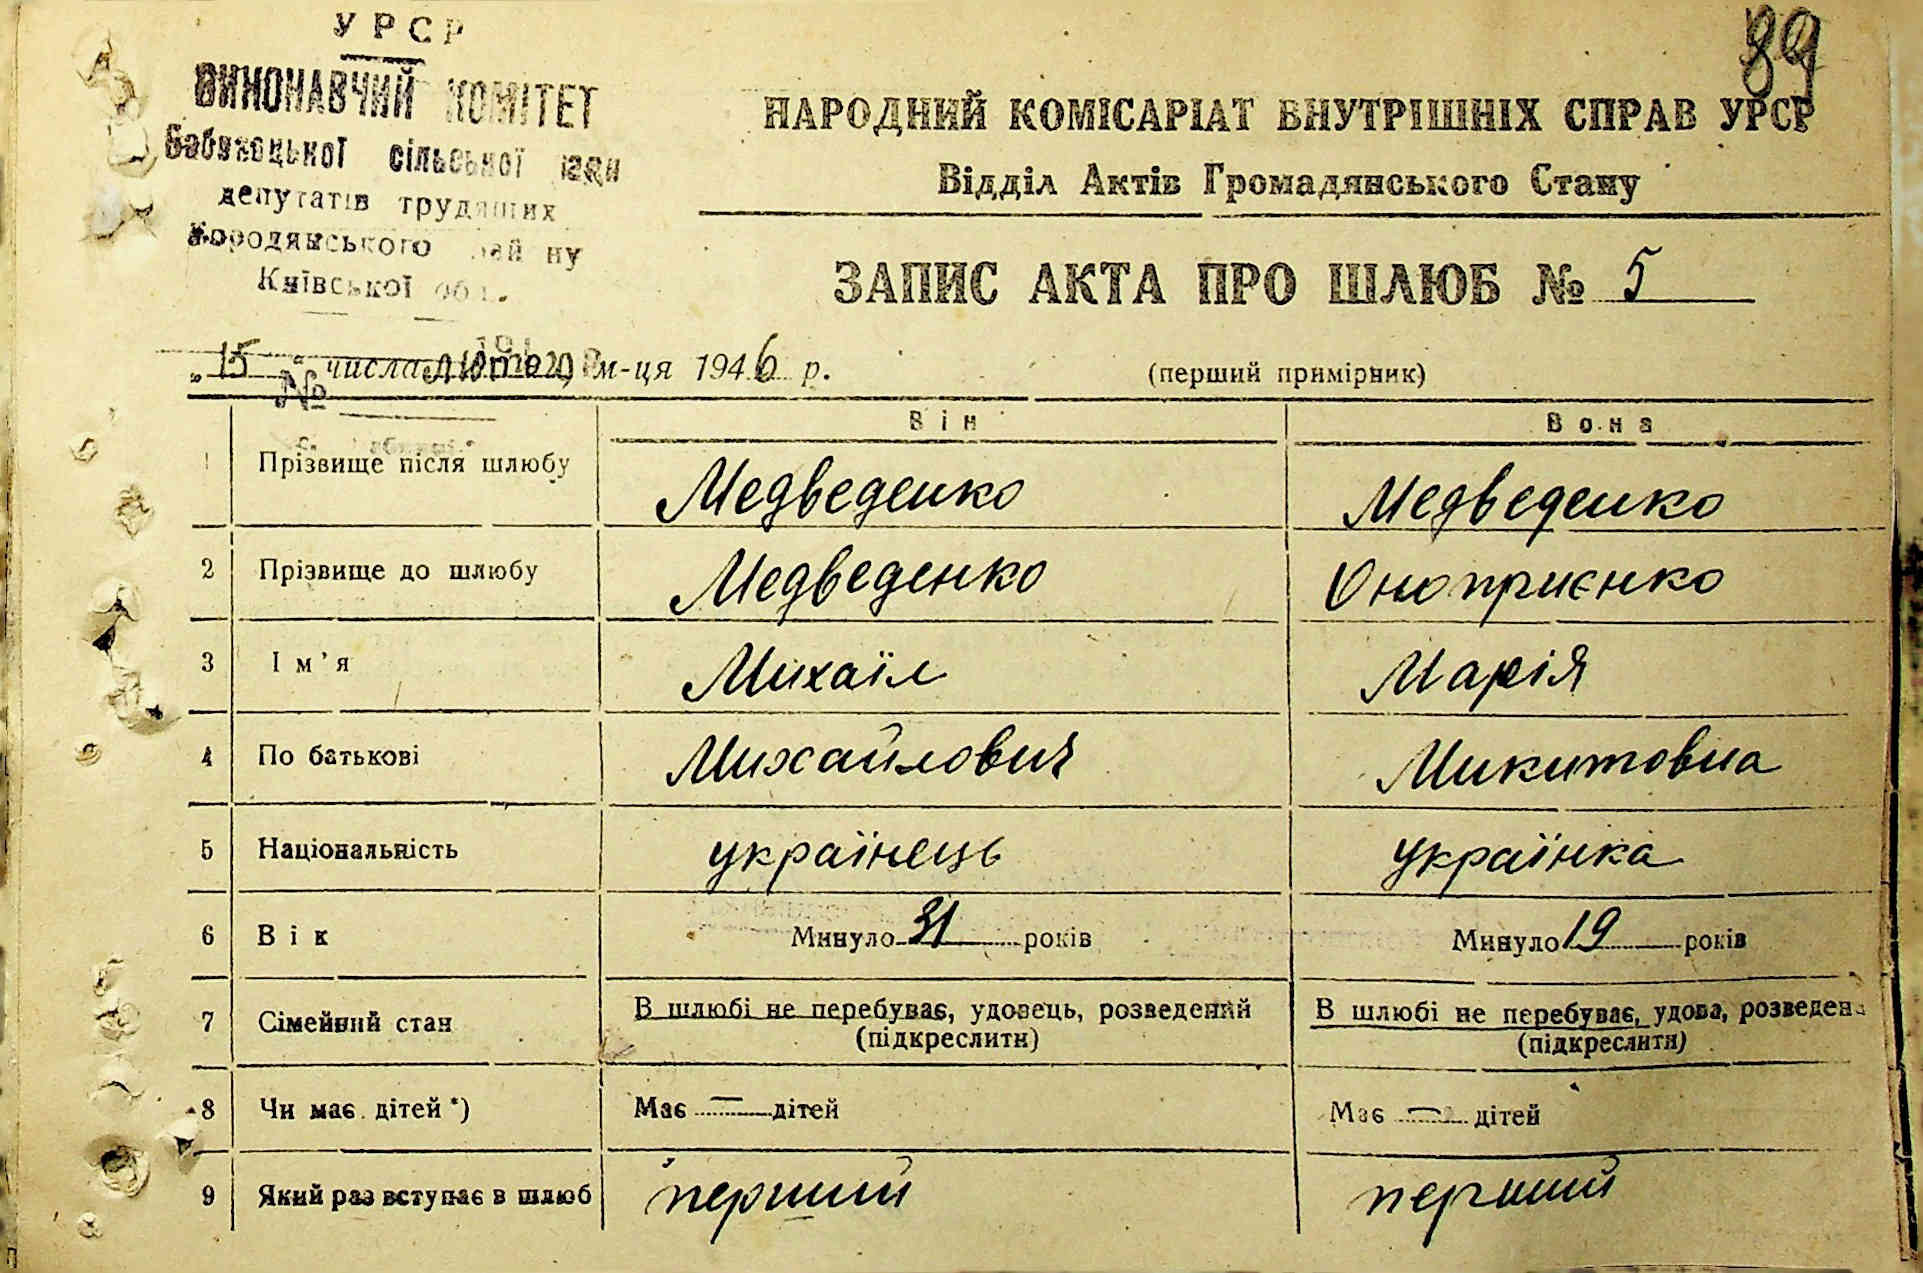 89
УРСР
ВИКОНАВЧИЙ КОМІТЕТ
Бабинецької сільської ради
депутатів трудящих
Бородянського рай ну
Київської обл.
№
НАРОДНИЙ КОМІСАРІАТ ВНУТРІШНІХ СПРАВ УРСР
Відділ Актів Громадянського Стану
ЗАПИС АКТА ПРО ШЛЮБ № 5
„ 15 " числа лютого м-ця 1946 р. (перший примірник)
Він Вона
1 Прізвище після шлюбу Медведенко Медведенко
2 Прізвище до шлюбу Медведенко Оноприєнко
3 Ім'я Михаїл Марія
4 По батькові Михайлович Микитовна
5 Національність українець українка
6 Вік Минуло 31 років Минуло 19 років
7 Сімейний стан В шлюбі не перебуває, удовець, розведений В шлюбі не перебуває, удова, розведена
(підкреслити) (підкреслити)
8 Чи має дітей *) Має — дітей Має — дітей
9 Який раз вступає в шлюб перший перший